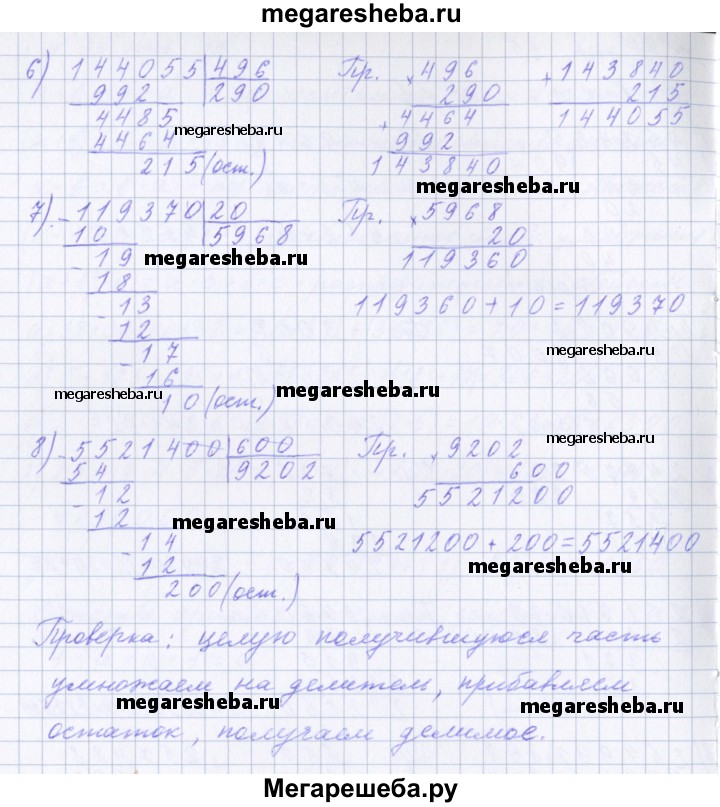 megaresheba.ru
6) 144055 | 496 Пр. × 496 + 143840
992 | 290 290 215
4485 + 4464 144055
megaresheba.ru
4464 992
215 (ост.) 143840
megaresheba.ru
7) - 119370 | 20 Пр. × 5968
10 | 5968 20
- 19 119360
megaresheba.ru
18
- 13 119360 + 10 = 119370
12
- 17
megaresheba.ru
16
megaresheba.ru megaresheba.ru
10 (ост.)
8) - 5521400 | 600 Пр. × 9202
megaresheba.ru
54 | 9202 600
- 12 5521200
12
megaresheba.ru
- 14 5521200 + 200 = 5521400
12
megaresheba.ru
200 (ост.)
Проверка: целую получившуюся часть
умножаем на делитель, прибавляем
megaresheba.ru megaresheba.ru
остаток, получаем делимое.
Мегарешеба.ру